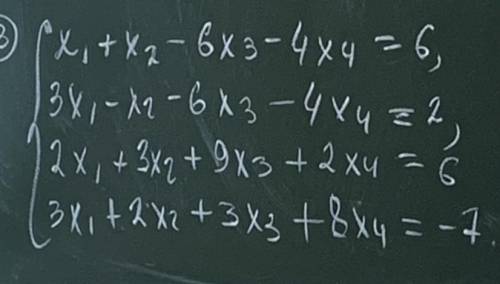 3) x₁ + x₂ - 6x₃ - 4x₄ = 6,
3x₁ - x₂ - 6x₃ - 4x₄ = 2,
2x₁ + 3x₂ + 9x₃ + 2x₄ = 6
3x₁ + 2x₂ + 3x₃ + 8x₄ = -7.